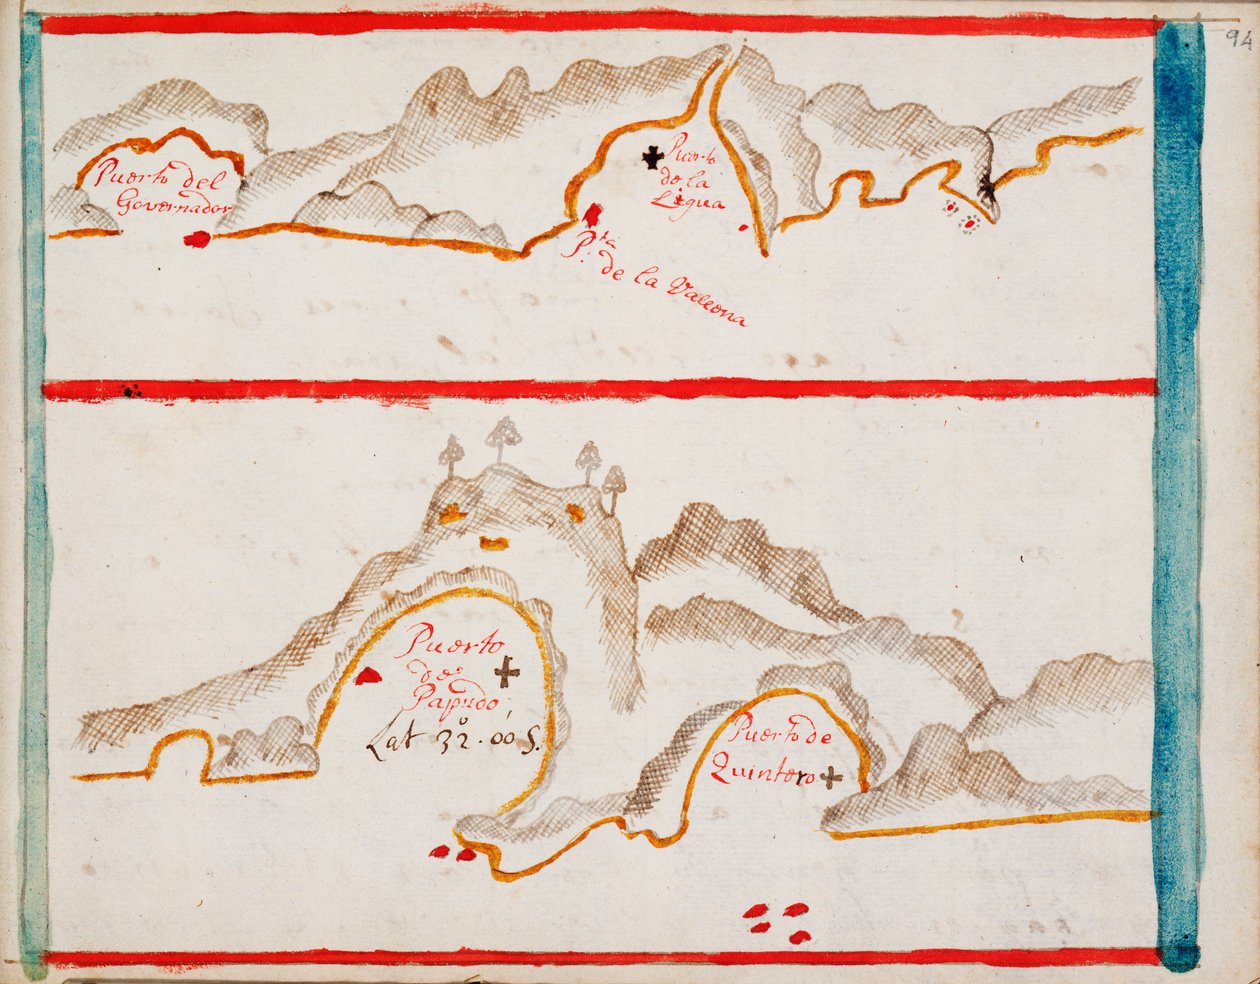 94
Puerto del
Governador
Puerto
de la
Ligua
P.ta de la Valeona
Puerto
de
Papudo
Lat 32°.00 S.
Puerto de
Quintero